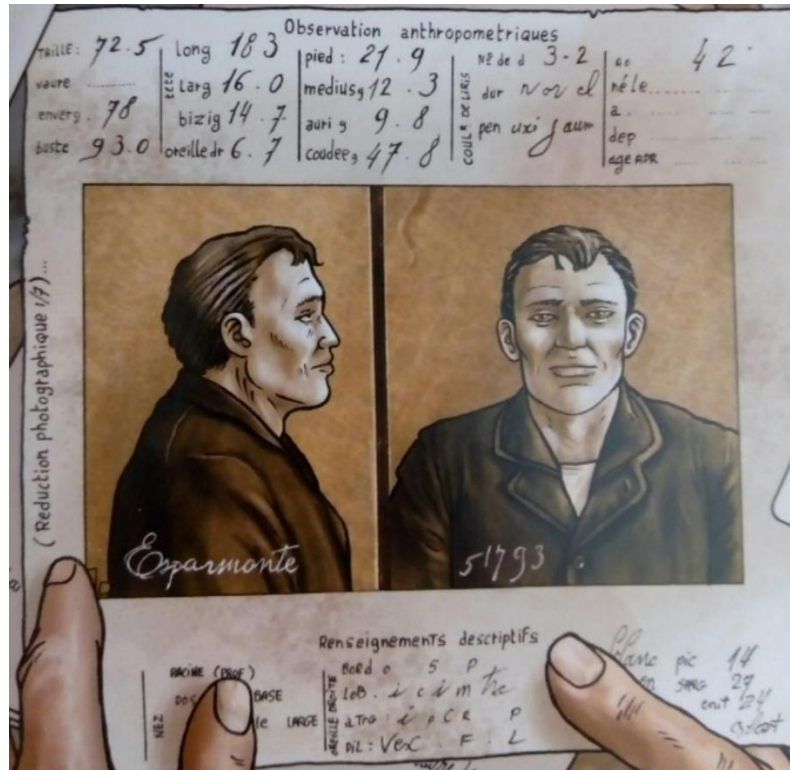 Observation anthropometriques
TAILLE: 72.5
vaure
enverg. 78
buste 93.0
TÊTE
long 18 3
Larg 16.0
bizig 14.7
oreille dr 6.7
pied: 21.9
medius g 12.3
auri g 9.8
coudee g 47.8
COULR DE L'IRIS
Nº de d 3-2
dur
pen uxi jaum
42
né le
a.
dep
age APR
(Reduction photographique 1/7)...
Esparmonte
51793
Renseignements descriptifs
NEZ
RACINE (PROF)
DOS BASE
le LARGE
OREILLE DROITE
Bord o S P
LoB.
aTrg
PIL: Vex. F. L
pic 14
SARG 27
24